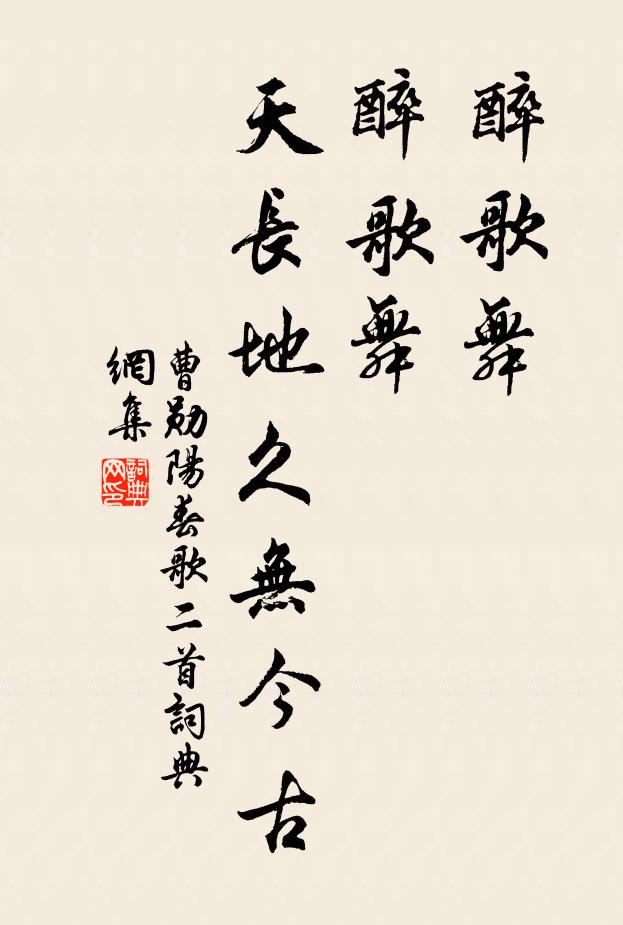 醉歌舞
醉歌舞
天長地久無今古
曹勛陽春歌二首詞典
網集
詞典
网印